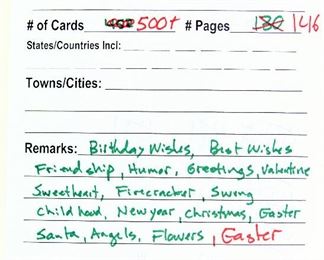 # of Cards 500+ # Pages 130 146
States/Countries Incl:
Towns/Cities:
Remarks: Birthday Wishes, Best Wishes
Friendship, Humor, Greetings, Valentine
Sweetheart, Firecracker, Swing
Childhood, New year, Christmas, Easter
Santa, Angels, Flowers, Easter